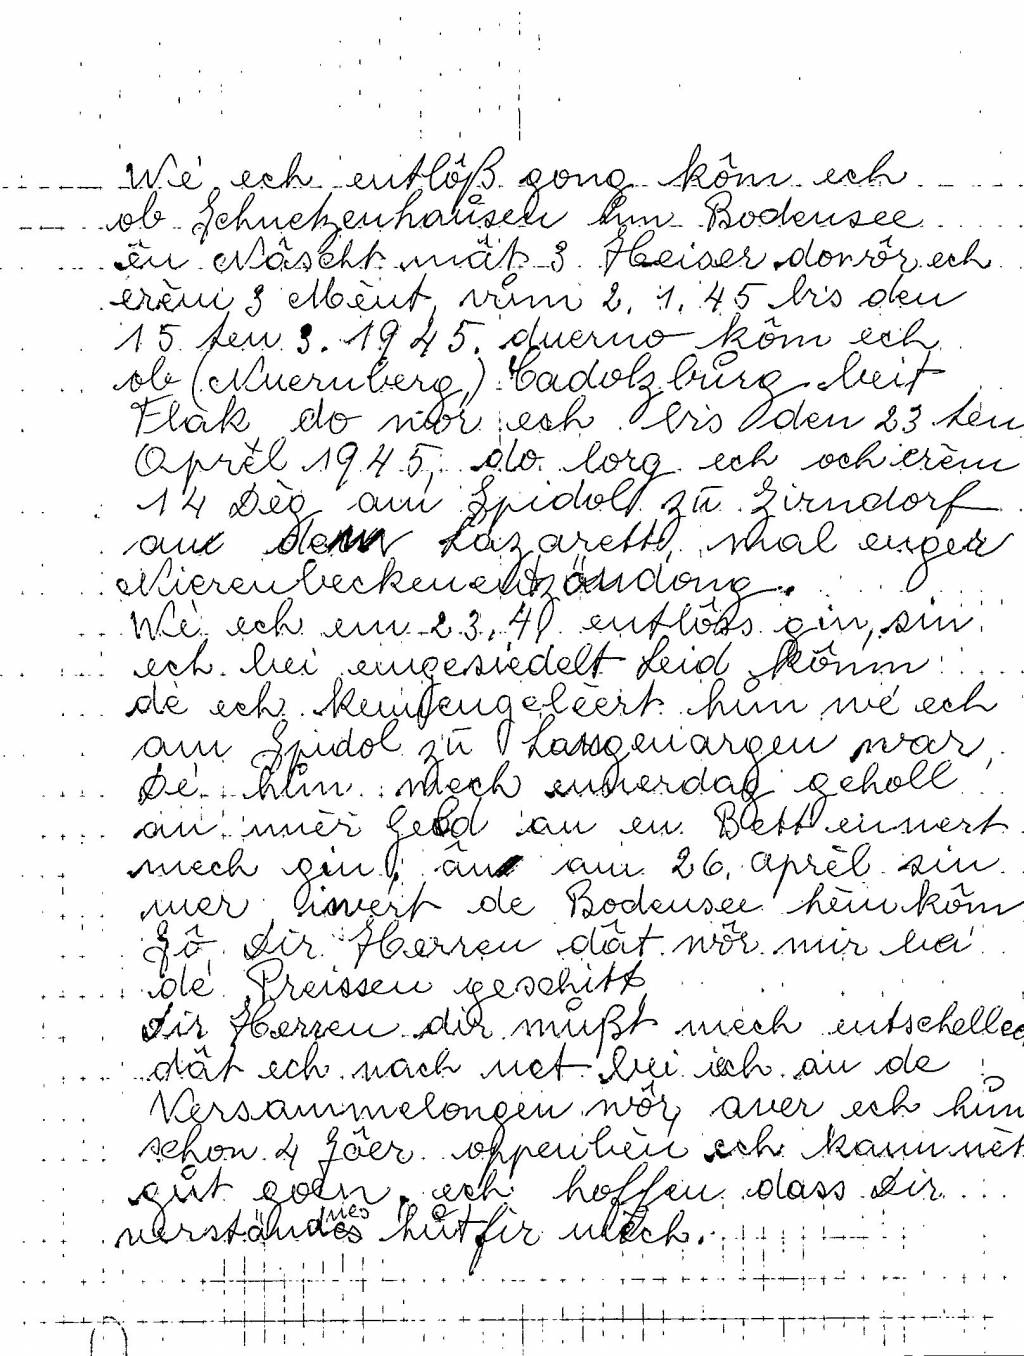 Wé ech entlôß gong kôm ech
ob Schnetzenhausen um Bodensee
ên Nâscht mät 3 Heiser do wôr ech
erèm 3 Mént, vum 2. 1. 45 bis den
15 ten 3. 1945. duerno kôm ech
ob (Nuernberg) Cadolzbůrg beit
Flak do wor ech bis den 23 ten
Aprěl 1945, do lorg ech och erèm
14 Dèg am Spidol zū Zirndorf
au dem Lazarett, mat enger
Nierenbeckenentzöndong.
Wé ech em 23.4 entlôss gin, sin
ech bei eingesiedelt Leid kômm
dé ech kennengeléert hun wé ech
am Spidol zū Langenargen war,
Dé hun mech ennerdag geholl
an mèr Geld an en Bett ennert
mech gin, ân am 26. Aprěl sin
mer iwert de Bodensee hèmkôm
Jô Dir Herren dât wôr mir bä
dé Preissen geschitt,
Dir Herren dir mußt mech entschelleg
dât ech nach net bei ich an de
Versammelongen wôr, awer ech hůn
schon 4 Jôer oppenbèn ech kann nèt
gůt goen, ech hoffen dass Dir
verständnes hůt fir mech.